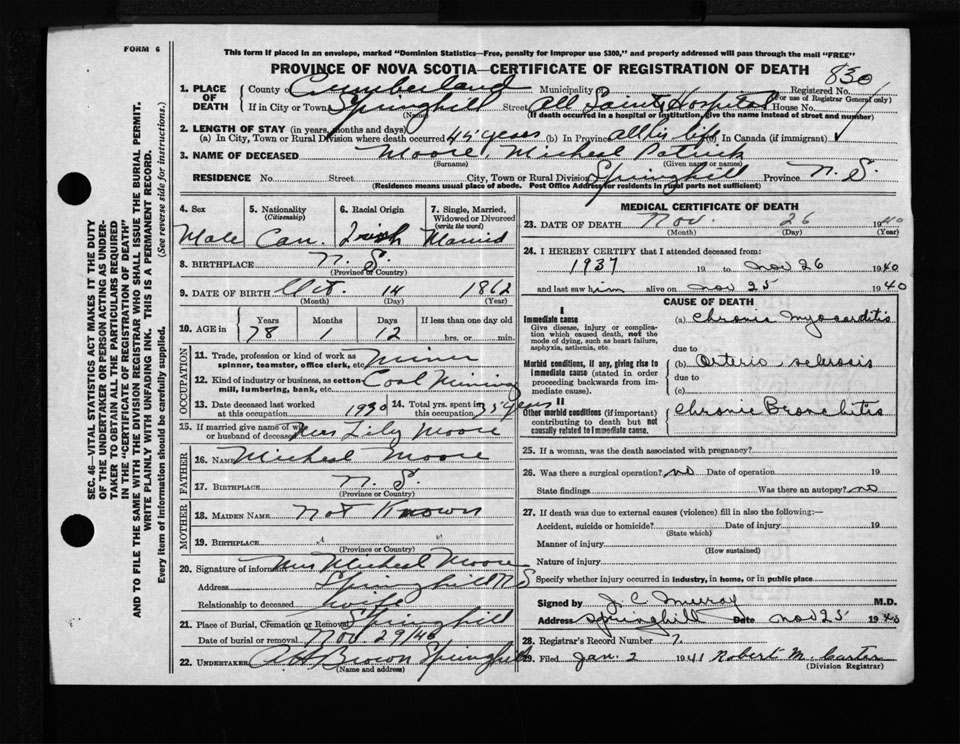 FORM 6
This form if placed in an envelope, marked "Dominion Statistics—Free, penalty for improper use $300," and properly addressed will pass through the mail "FREE"
PROVINCE OF NOVA SCOTIA—CERTIFICATE OF REGISTRATION OF DEATH
830
SEC. 46—VITAL STATISTICS ACT MAKES IT THE DUTY
OF THE UNDERTAKER OR PERSON ACTING AS UNDER-
TAKER TO OBTAIN ALL THE PARTICULARS REQUIRED
IN THE "CERTIFICATE OF REGISTRATION OF DEATH"
AND TO FILE THE SAME WITH THE DIVISION REGISTRAR WHO SHALL ISSUE THE BURIAL PERMIT.
WRITE PLAINLY WITH UNFADING INK. THIS IS A PERMANENT RECORD.
Every item of information should be carefully supplied. (See reverse side for instructions.)
1. PLACE OF DEATH
County of Cumberland Municipality of Registered No.
(For use of Registrar General only)
If in City or Town Springhill Street All Saints Hospital House No.
(Name) (If death occurred in a hospital or institution, give the name instead of street and number)
2. LENGTH OF STAY (in years, months and days)
(a) In City, Town or Rural Division where death occurred 45 years (b) In Province all his life (c) In Canada (if immigrant)
3. NAME OF DECEASED Moore, Micheal Patrick
(Surname) (Given name or names)
RESIDENCE No. Street City, Town or Rural Division Springhill Province N. S.
(Residence means usual place of abode. Post Office Address for residents in rural parts not sufficient)
4. Sex Male
5. Nationality (Citizenship) Can.
6. Racial Origin Irish
7. Single, Married, Widowed or Divorced (write the word) Married
8. BIRTHPLACE N. S.
(Province or Country)
9. DATE OF BIRTH Oct. 14 1862
(Month) (Day) (Year)
10. AGE in Years 78 Months 1 Days 12 If less than one day old hrs. or min.
OCCUPATION
11. Trade, profession or kind of work as spinner, teamster, office clerk, etc. Miner
12. Kind of industry or business, as cotton mill, lumbering, bank, etc. Coal Mining
13. Date deceased last worked at this occupation 1930
14. Total yrs. spent in this occupation years
15. If married give name of wife or husband of deceased Mrs Lily Moore
FATHER
16. Name Micheal Moore
17. Birthplace N. S.
(Province or Country)
MOTHER
18. Maiden Name Not Known
19. Birthplace
(Province or Country)
20. Signature of informant Mrs Micheal Moore
Address Springhill N S
Relationship to deceased wife
21. Place of Burial, Cremation or Removal Springhill
Date of burial or removal Nov 29/40
22. UNDERTAKER Brown Springhill
(Name and address)
MEDICAL CERTIFICATE OF DEATH
23. DATE OF DEATH Nov. 26 1940
(Month) (Day) (Year)
24. I HEREBY CERTIFY that I attended deceased from:
1937 19 to Nov 26 1940
and last saw him alive on Nov 25 1940
CAUSE OF DEATH
I
Immediate cause (a) Chronic Myocarditis
Give disease, injury or complica-
tion which caused death, not the
mode of dying, such as heart failure,
asphyxia, asthenia, etc.
due to
Morbid conditions, if any, giving rise to (b) Arterio sclerosis
immediate cause (stated in order
proceeding backwards from im-
mediate cause).
due to
(c)
II
Other morbid conditions (if important)
contributing to death but not
causally related to immediate cause. Chronic Bronchitis
25. If a woman, was the death associated with pregnancy?
26. Was there a surgical operation? no Date of operation 19
State findings Was there an autopsy? no
27. If death was due to external causes (violence) fill in also the following:—
Accident, suicide or homicide? Date of injury 19
(State which)
Manner of injury
(How sustained)
Nature of injury
Specify whether injury occurred in industry, in home, or in public place
Signed by J. C. Murray M.D.
Address Springhill Date Nov 25 1940
28. Registrar's Record Number 7.
29. Filed Jan. 2 1941 Robert M. Carter
(Division Registrar)